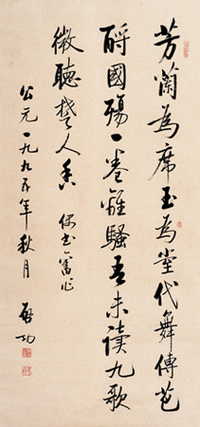 芳蘭為席玉為堂代舞傳芭
酹國殤一卷離騷吾未讀九歌
微聽楚人香 舊作
公元一九九五年秋月 啟功